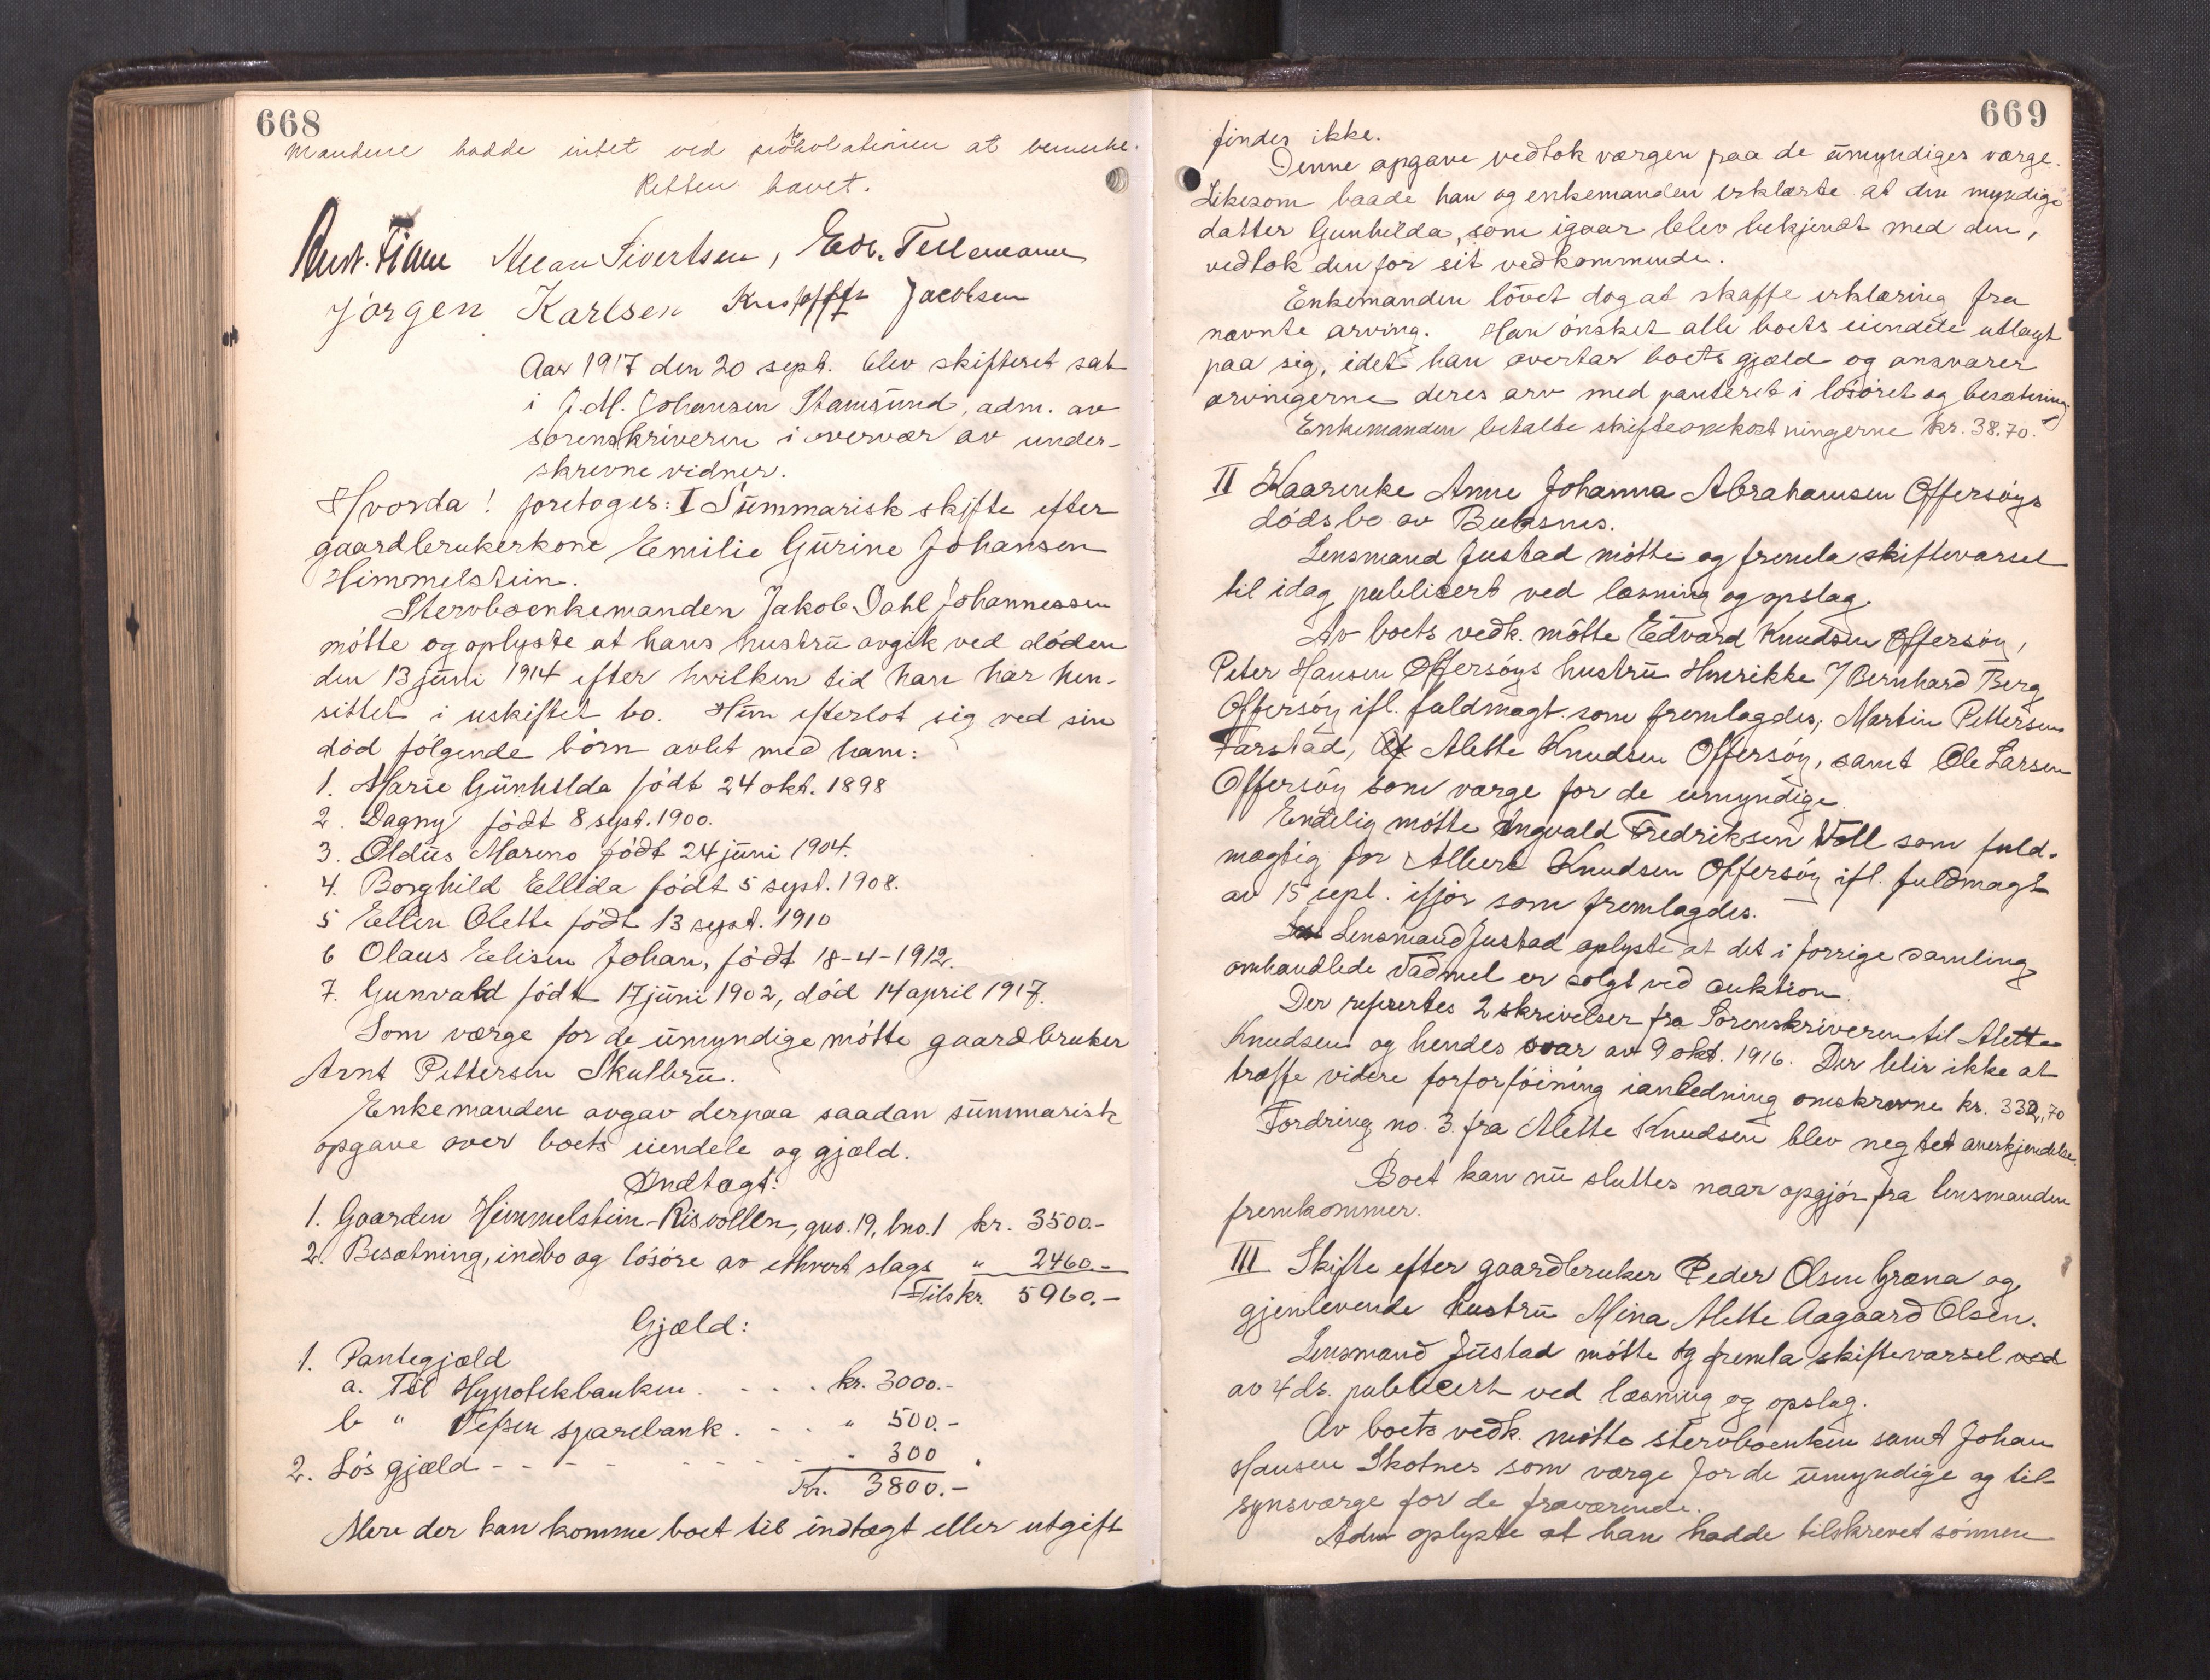 668
Mændene hadde intet ved protokolationen at bemerke.
Retten hævet.
Sivertsen, Edv. Tellemann
Jörgen Karlsen Kristoffer Jacobsen
Aar 1917 den 20 sept. blev skifteret sat
i J. M. Johansen Stamsund, adm. av
sorenskriveren i overvær av under-
skrevne vidner.
Hvorda! foretoges: I Summarisk skifte efter
gaardbrukerkone Emilie Gurine Johansen
Himmelstein.
Stervboenkemanden Jakob Dahl Johannessen
mötte og oplyste at hans hustru avgik ved döden
den 13 juni 1914 efter hvilken tid han har hen-
sittet i uskiftet bo. Hun efterlot sig ved sin
död fölgende börn avlet med ham:
1. Marie Gunhilda födt 24 okt. 1898
2. Dagny födt 8 sept. 1900.
3. Oldus Mareno födt 24 juni 1904.
4. Borghild Ellida födt 5 sept. 1908.
5 Ellen Olette födt 13 sept. 1910
6 Olaus Elisen Johan, födt 18-4-1912.
7. Gunvald födt 17 juni 1902, död 14 april 1917.
Som værge for de umyndige mötte gaardbruker
Arnt Pettersen Skulbru.
Enkemanden avgav derpaa saadan summarisk
opgave over boets eiendele og gjæld.
Indtægt:
1. Gaarden Himmelstein-Risvollen, gno. 19, bno. 1 kr. 3500.-
2. Besætning, indbo og lösöre av ethvert slags " 2460.-
Tils kr. 5960.-
Gjæld:
1. Pantegjæld
a. Til Hypotekbanken . . . . kr. 3000.-
b " Vefsen sparebank . . . " 500.-
2. Lös gjæld - - - - - - - - - 300
Kr. 3800.-
Mere der kan komme boet til indtægt eller utgift
669
findes ikke.
Denne opgave vedtok værgen paa de umyndiges værge.
Likesom baade han og enkemanden erklærte at den myndige
datter Gunhilda, som igaar blev bekjendt med den,
vedtok den for sit vedkommende.
Enkemanden lövet dog at skaffe erklæring fra
nævnte arving. Han önsket alle boets eiendele utlagt
paa sig, idet han overtar boets gjæld og ansvarer
arvingerne deres arv med panteret i lösöret og besætning.
Enkemanden betalte skifteomkostningerne kr. 38.70.
II Kaarenke Anne Johanna Abrahamsen Offersöys
dödsbo av Buksnes.
Lensmand Justad mötte og fremla skiftevarsel
til idag publicert ved læsning og opslag.
Av boets vedk. mötte Edvard Knudsen Offersöy,
Peter Hansen Offersöys hustru Henrikke v/ Bernhard Berg
Offersöy ifl. fuldmagt som fremlagdes, Martin Pettersen
Farstad, Alette Knudsen Offersöy, samt Ole Larsen
Offersöy som værge for de umyndige.
Endelig mötte Ingvald Fredriksen Voll som fuld-
mægtig for Albert Knudsen Offersöy ifl. fuldmagt
av 15 sept. ifjor som fremlagdes.
Lensmand Justad oplyste at det i forrige samling
omhandlede Vadmel er solgt ved auktion.
Der refertes 2 skrivelser fra Sorenskriveren til Alette
Knudsen og hendes svar av 9 okt. 1916. Der blir ikke at
træffe videre forforföining ianledning omskrevne kr. 332,70
Fordring no. 3. fra Alette Knudsen blev negtet anerkjendelse.
Boet kan nu sluttes naar opgjör fra lensmanden
fremkommer.
III Skifte efter gaardbruker Peder Olsen Græna og
gjenlevende hustru Mina Alette Aagaard Olsen.
Lensmand Justad mötte og fremla skiftevarsel ved
av 4 ds. publicert ved læsning og opslag.
Av boets vedk. mötte stervboenken samt Johan
Hansen Skotnes som værge for de umyndige og til-
synsværge for de fraværende.
Adm oplyste at han hadde tilskrevet sönnen